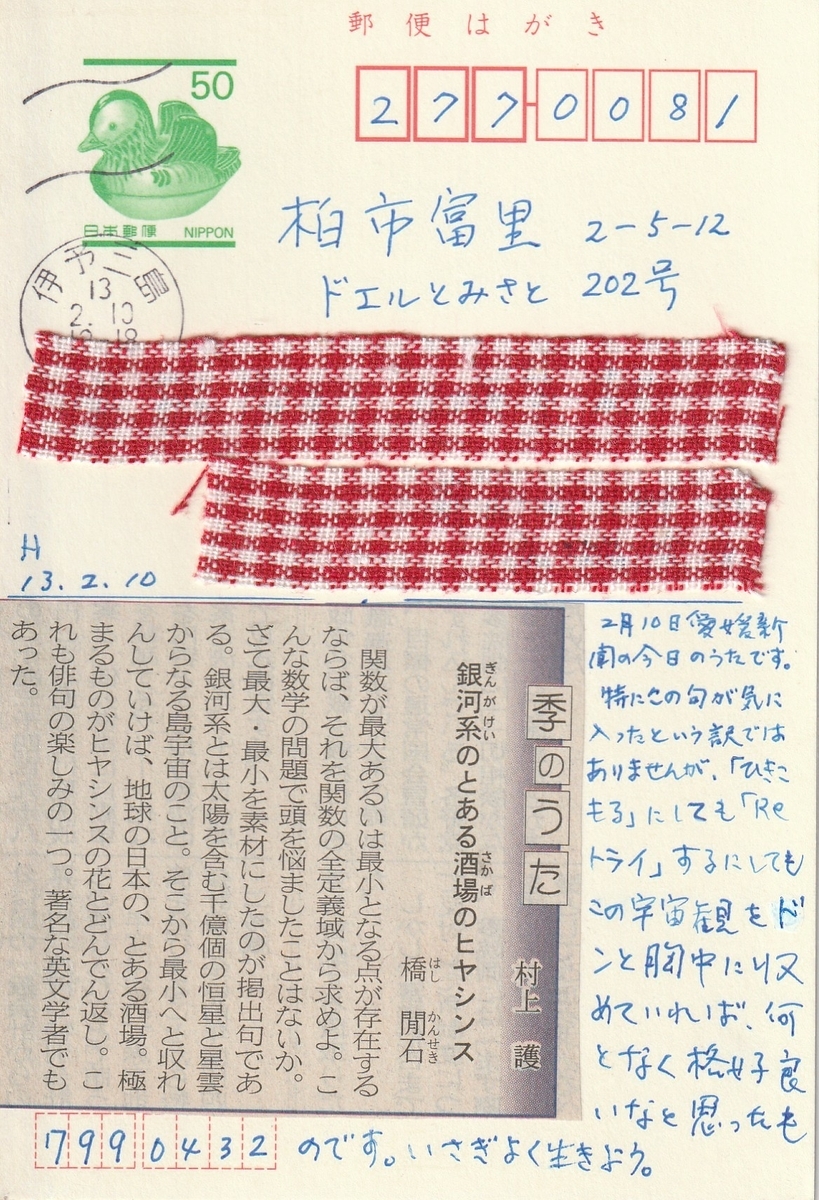 郵便はがき
50
日本郵便 NIPPON
277-0081
柏市富里 2-5-12
ドエルとみさと 202号
伊予三島
13
2. 10
H
13.2.10
季のうた
村上 護
銀河系のとある酒場のヒヤシンス
ぎんがけい
さかば
橋 閒石
はし かんせき
関数が最大あるいは最小となる点が存在する
ならば、それを関数の全定義域から求めよ。こ
んな数学の問題で頭を悩ましたことはないか。
さて最大・最小を素材にしたのが掲出句であ
る。銀河系とは太陽を含む千億個の恒星と星雲
からなる島宇宙のこと。そこから最小へと収れ
んしていけば、地球の日本の、とある酒場。極
まるものがヒヤシンスの花とどんでん返し。こ
れも俳句の楽しみの一つ。著名な英文学者でも
あった。
2月10日愛媛新
聞の今日のうたです。
特にこの句が気に
入ったという訳では
ありませんが、「ひきこ
もる」にしても「Re
トライ」するにしても
この宇宙観をド
ンと胸中に収
めていれば、何
となく格好良
いなと思ったも
のです。いさぎよく生きよう。
7990432